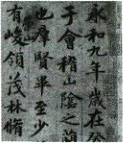 永和九年歲在癸
于會稽山陰之蘭
也羣賢畢至少
有峻領茂林脩